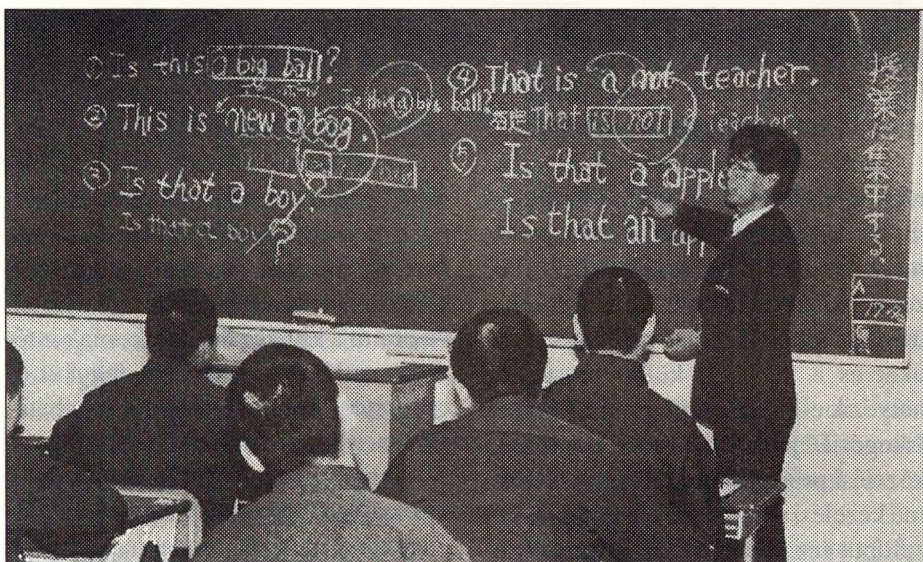 ① Is this a big ball?
Is this a big ball?
② This is new a bag.
③ Is that a boy.
Is that a boy?
④ That is a not teacher.
否定 That is not a teacher.
⑤ Is that a apple
Is that an app
授業に集中する。
A